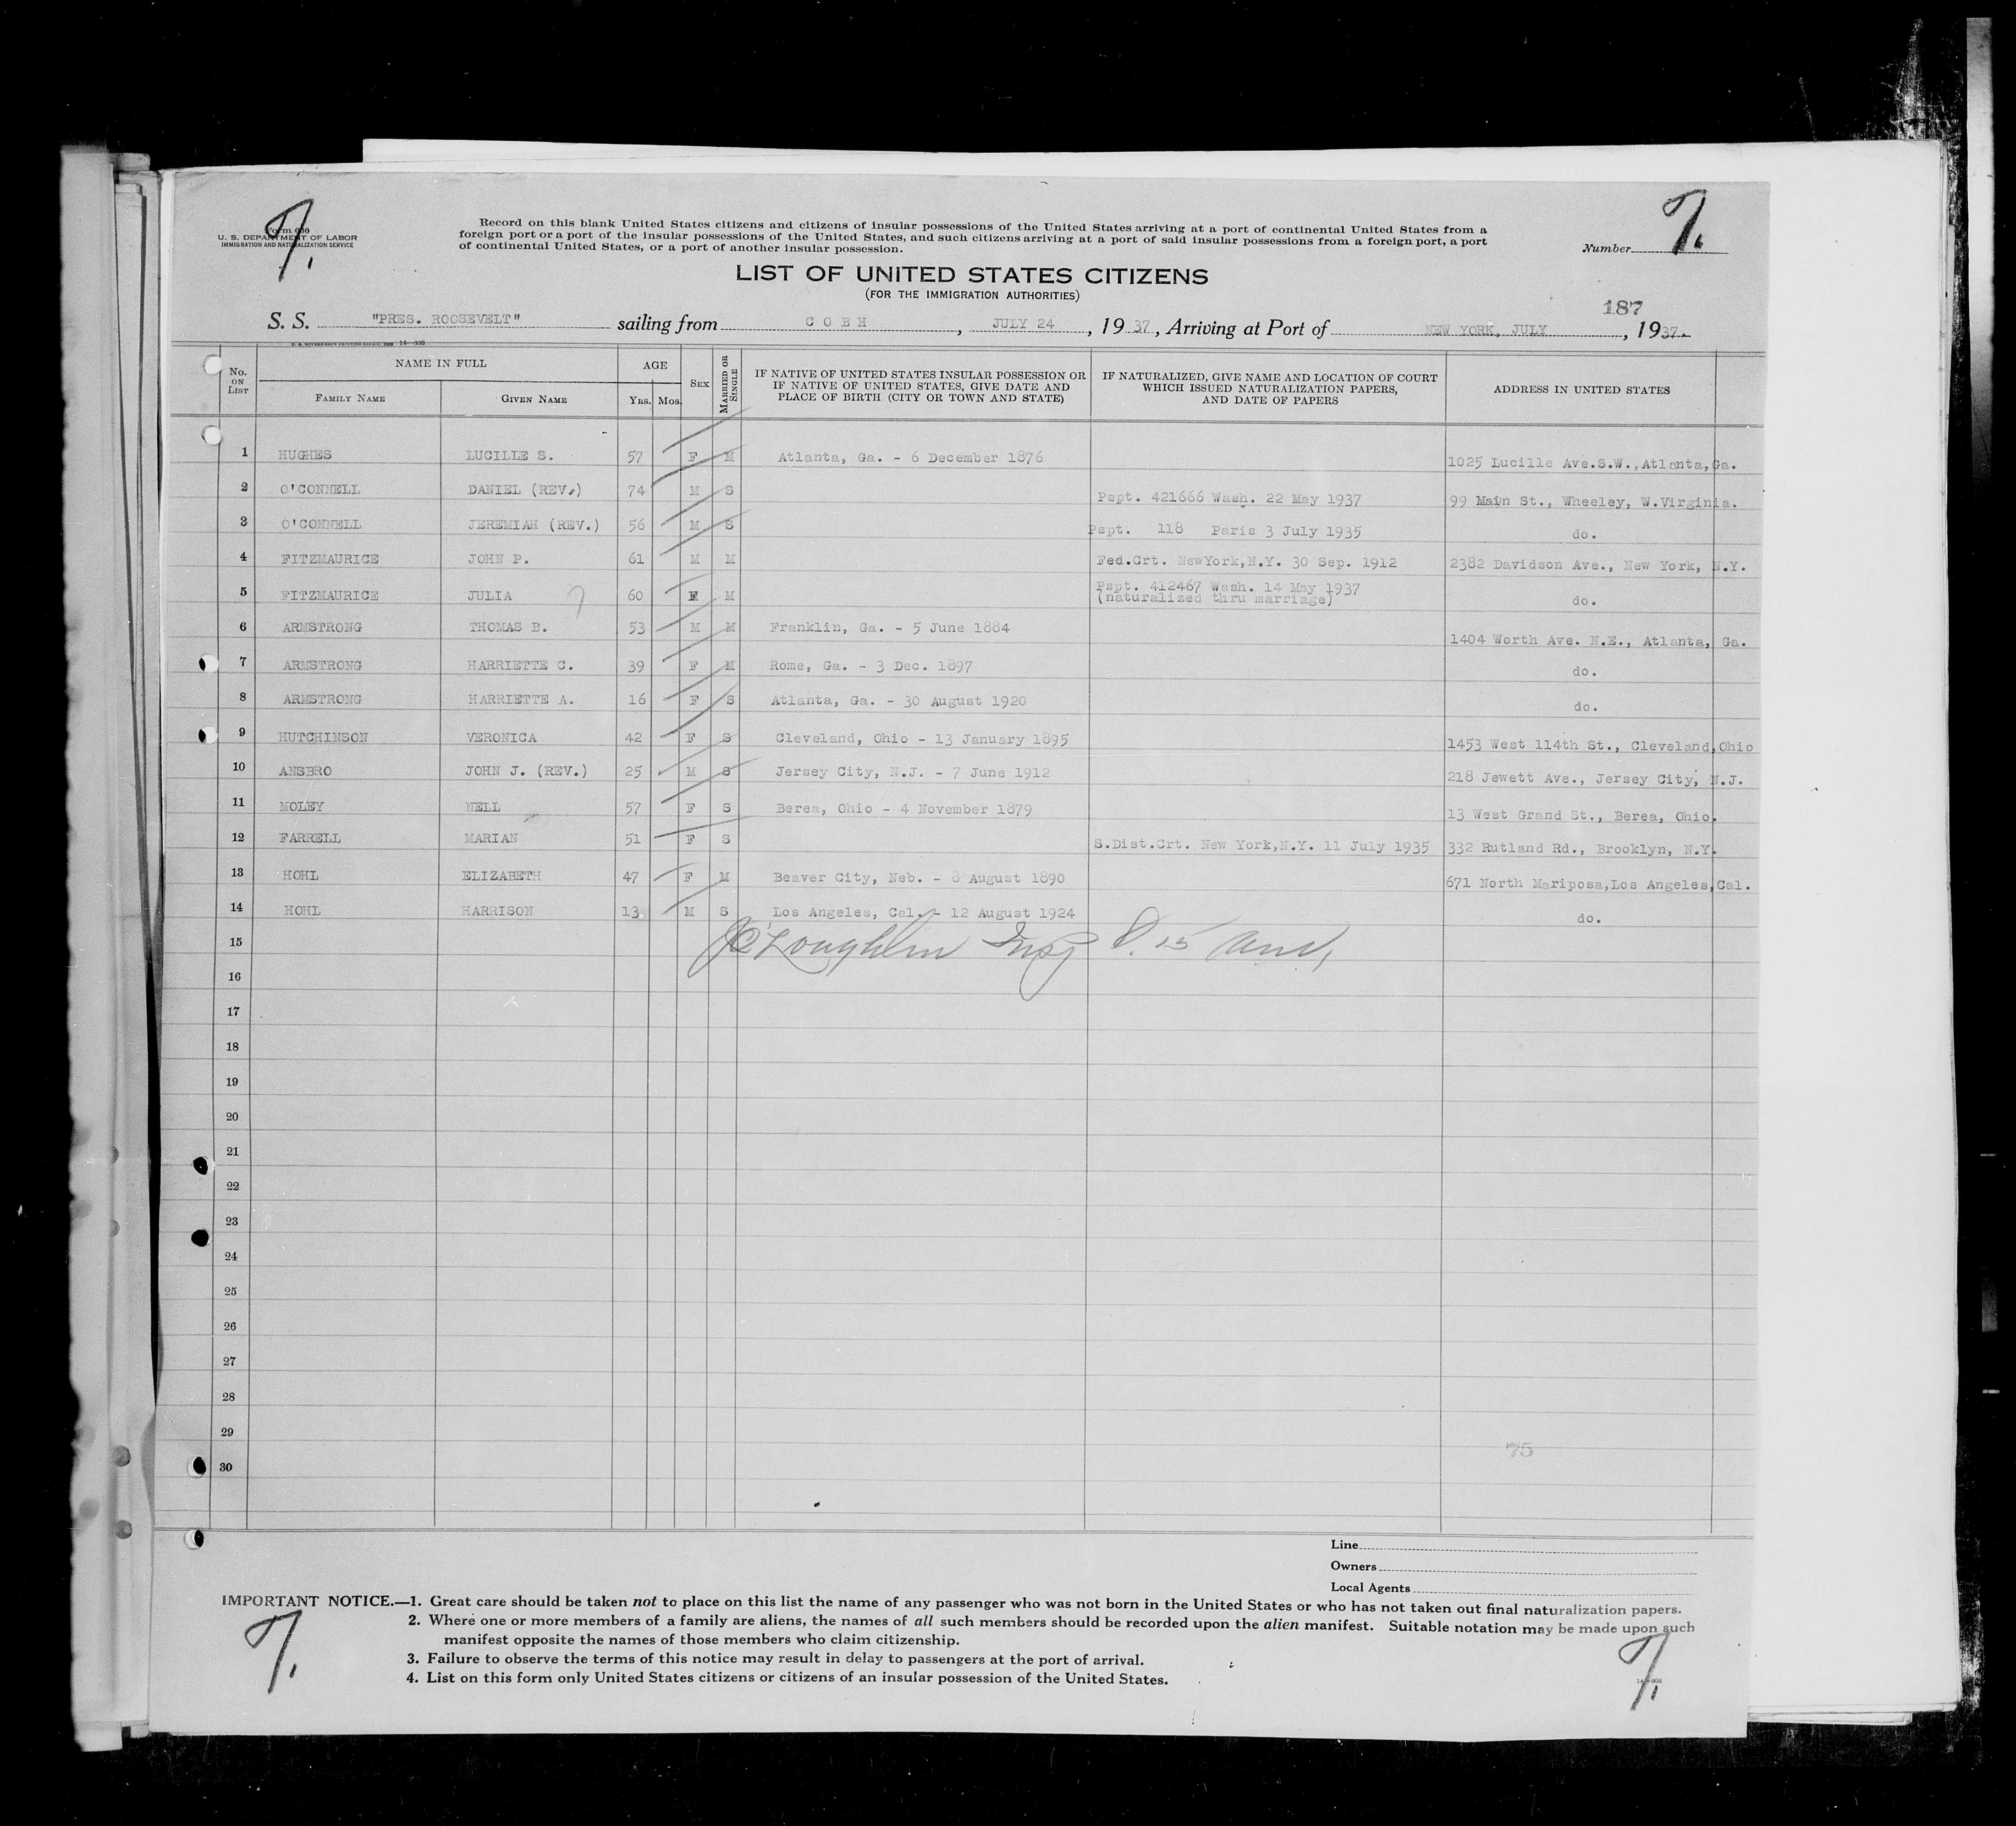 Form 630
U. S. DEPARTMENT OF LABOR
IMMIGRATION AND NATURALIZATION SERVICE
7.
Record on this blank United States citizens and citizens of insular possessions of the United States arriving at a port of continental United States from a
foreign port or a port of the insular possessions of the United States, and such citizens arriving at a port of said insular possessions from a foreign port, a port
of continental United States, or a port of another insular possession.
Number 7.
LIST OF UNITED STATES CITIZENS
(FOR THE IMMIGRATION AUTHORITIES)
187
S. S. "PRES. ROOSEVELT" sailing from COBH, JULY 24, 1937, Arriving at Port of NEW YORK, JULY, 1937.
No. ON LIST NAME IN FULL FAMILY NAME GIVEN NAME AGE YRS. MOS. SEX MARRIED OR SINGLE IF NATIVE OF UNITED STATES INSULAR POSSESSION OR IF NATIVE OF UNITED STATES, GIVE DATE AND PLACE OF BIRTH (CITY OR TOWN AND STATE) IF NATURALIZED, GIVE NAME AND LOCATION OF COURT WHICH ISSUED NATURALIZATION PAPERS, AND DATE OF PAPERS ADDRESS IN UNITED STATES
1 HUGHES LUCILLE S. 57 F M Atlanta, Ga. - 6 December 1876 1025 Lucille Ave.S.W.,Atlanta,Ga.
2 O'CONNELL DANIEL (REV.) 74 M S Pspt. 421666 Wash. 22 May 1937 99 Main St., Wheeley, W.Virginia.
3 O'CONNELL JEREMIAH (REV.) 56 M S Pspt. 118 Paris 3 July 1935 do.
4 FITZMAURICE JOHN P. 61 M M Fed.Crt. NewYork,N.Y. 30 Sep. 1912 2382 Davidson Ave., New York, N.Y.
5 FITZMAURICE JULIA 60 F M Pspt. 412467 Wash. 14 May 1937 (naturalized thru marriage) do.
6 ARMSTRONG THOMAS B. 53 M M Franklin, Ga. - 5 June 1884 1404 Worth Ave. N.E., Atlanta, Ga.
7 ARMSTRONG HARRIETTE C. 39 F M Rome, Ga. - 3 Dec. 1897 do.
8 ARMSTRONG HARRIETTE A. 16 F S Atlanta, Ga. - 30 August 1920 do.
9 HUTCHINSON VERONICA 42 F S Cleveland, Ohio - 13 January 1895 1453 West 114th St., Cleveland,Ohio
10 ANSBRO JOHN J. (REV.) 25 M S Jersey City, N.J. - 7 June 1912 218 Jewett Ave., Jersey City, N.J.
11 MOLEY NELL 57 F S Berea, Ohio - 4 November 1879 13 West Grand St., Berea, Ohio.
12 FARRELL MARIAN 51 F S S.Dist.Crt. New York,N.Y. 11 July 1935 332 Rutland Rd., Brooklyn, N.Y.
13 HOHL ELIZABETH 47 F M Beaver City, Neb. - 8 August 1890 671 North Mariposa,Los Angeles,Cal.
14 HOHL HARRISON 13 M S Los Angeles, Cal. - 12 August 1924 do.
15 O'Loughlin Insp
16
17
18
19
20
21
22
23
24
25
26
27
28
29
75
30
Line
Owners
Local Agents
IMPORTANT NOTICE.—1. Great care should be taken not to place on this list the name of any passenger who was not born in the United States or who has not taken out final naturalization papers.
2. Where one or more members of a family are aliens, the names of all such members should be recorded upon the alien manifest. Suitable notation may be made upon such
manifest opposite the names of those members who claim citizenship.
3. Failure to observe the terms of this notice may result in delay to passengers at the port of arrival.
4. List on this form only United States citizens or citizens of an insular possession of the United States.
7.
7.